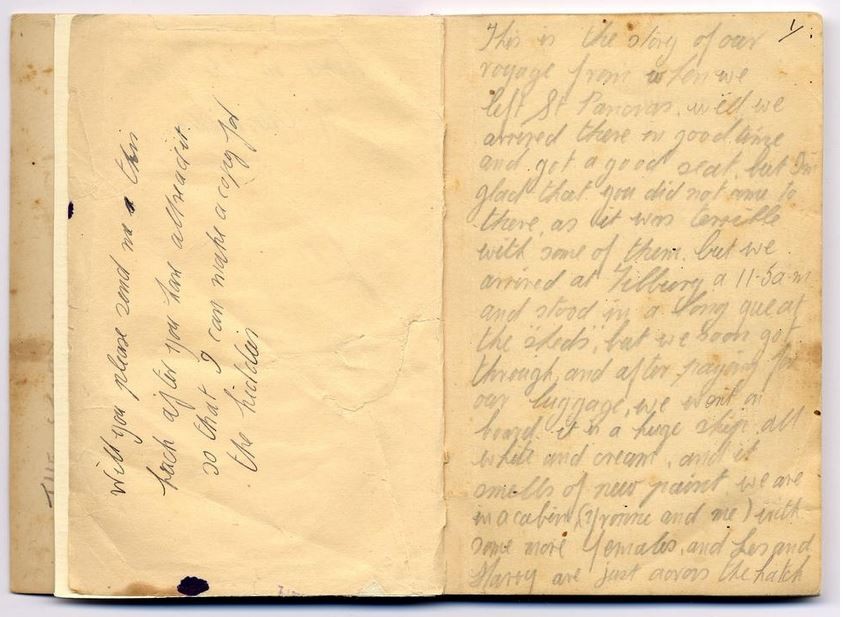 Will you please send me this
back after you have all read it
so that I can make a copy for
the kiddies
1/
This is the story of our
voyage from when we
left St Pancras. well we
arrived there in good time
and got a good seat. but I'm
glad that you did not come to
there, as it was terrible
with some of them. but we
arrived at Tilbury a 11-5 a-m
and stood in a long que at
the "sheds", but we soon got
through, and after paying for
our luggage, we went on
board. it is a huge ship. all
white and cream, and it
smells of new paint we are
in a cabin, (Yvonne and me) with
some more females, and Les and
Harry are just across the hatch